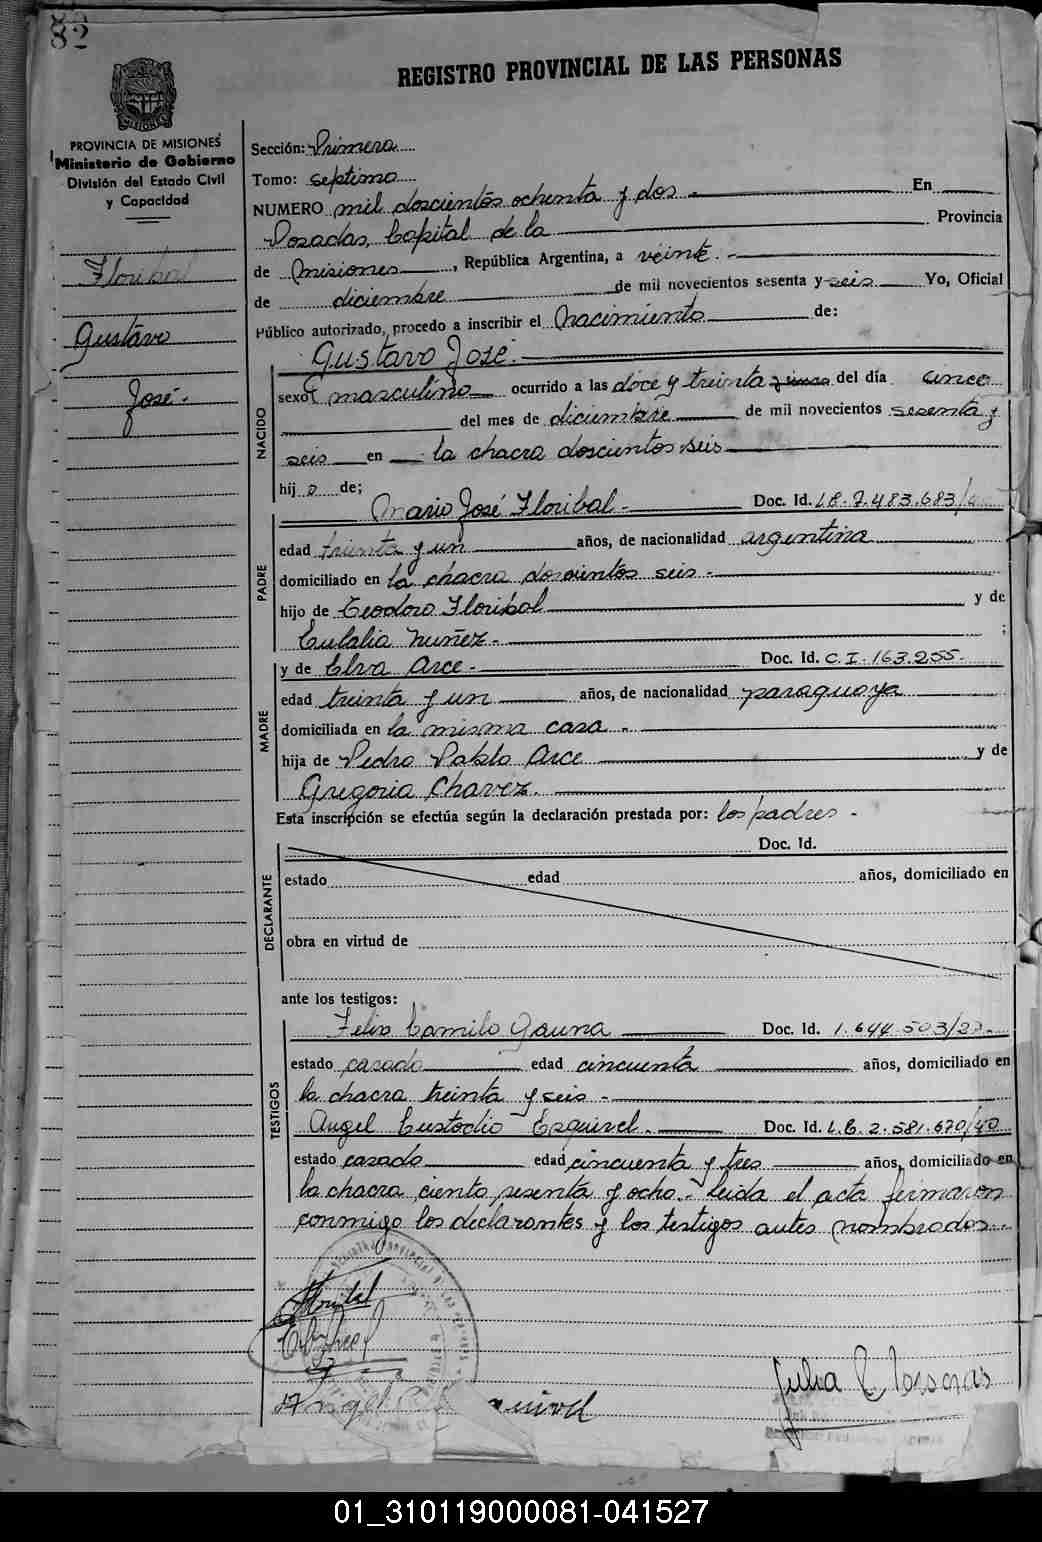 82
REGISTRO PROVINCIAL DE LAS PERSONAS
MISIONES
PROVINCIA DE MISIONES
Ministerio de Gobierno
División del Estado Civil
y Capacidad
Floribal
Gustavo
José.-
Sección: Primera
Tomo: septimo
NUMERO mil doscientos ochenta y dos.- En
Posadas, Capital de la Provincia
de Misiones, República Argentina, a veinte.-
de diciembre de mil novecientos sesenta y seis Yo, Oficial
Público autorizado, procedo a inscribir el nacimiento de:
Gustavo José.
NACIDO
sexo masculino ocurrido a las doce y treinta y cinco del día cinco
del mes de diciembre de mil novecientos sesenta y
seis en la chacra doscientos seis
hijo de;
Mario José Floribal.- Doc. Id. L.E. 7.483.683/
PADRE
edad treinta y un años, de nacionalidad argentina
domiciliado en la chacra doscientos seis.-
hijo de Teodoro Floribal y de
Eulalia Nuñez.- ;
y de Elva Arce.- Doc. Id. C.I. 163.255.-
MADRE
edad treinta y un años, de nacionalidad paraguaya
domiciliada en la misma casa.-
hija de Pedro Pablo Arce y de
Gregoria Chavez.
Esta inscripción se efectúa según la declaración prestada por: los padres -
DECLARANTE
Doc. Id.
estado edad años, domiciliado en
obra en virtud de
ante los testigos:
TESTIGOS
Felix Camilo Gauna Doc. Id. 1.644.503/
estado casado edad cincuenta años, domiciliado en
la chacra treinta y seis.-
Angel Custodio Esquivel.- Doc. Id. L.E. 2.581.670/40
estado casado edad cincuenta y tres años, domiciliado en
la chacra ciento sesenta y ocho.- Leida el acta firmaron
conmigo los declarantes y los testigos antes nombrados.-
01_310119000081-041527